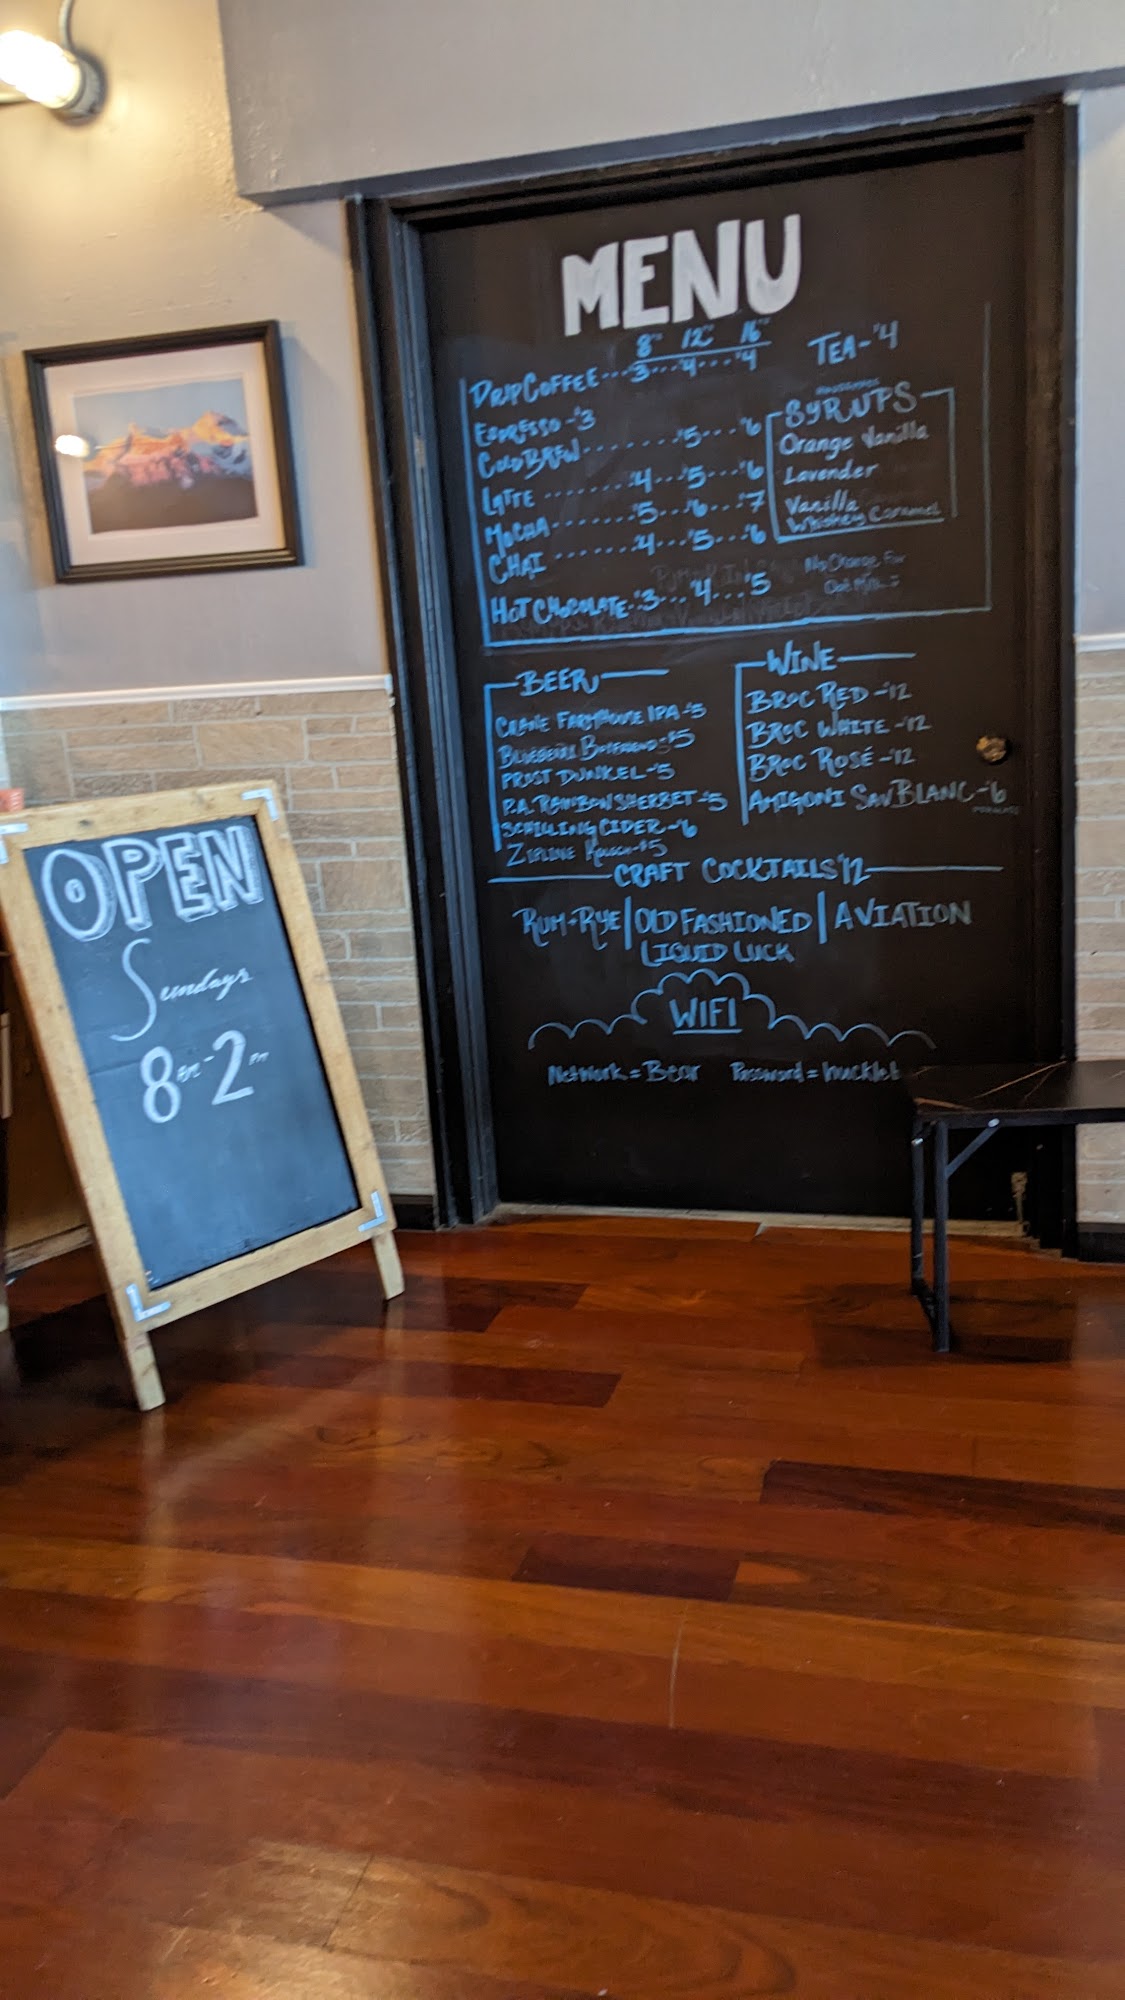 MENU
8oz 12oz 16oz
DRIP COFFEE...$3...$4...$4
TEA-$4
ESPRESSO-$3
COLD BREW........$5...$6
LATTE .......$4...$5...$6
MOCHA.......$5...$6...$7
CHAI .......$4...$5...$6
HOT CHOCOLATE..$3...$4...$5
SYRUPS
Orange Vanilla
Lavender
Vanilla
Whiskey Caramel
No Charge For
Oat Milk :
BEER
CRANE FARMHOUSE IPA-$5
BLUEBERRY BOYFRIEND-$5
FROST DUNKEL-$5
P.A. RAINBOW SHERBET-$5
SCHILLING CIDER-$6
ZIPLINE KOLSCH-$5
WINE
BROC RED-$12
BROC WHITE-$12
BROC ROSÉ-$12
AMIGONI SAV BLANC-$6
CRAFT COCKTAILS $12
RUM+RYE | OLD FASHIONED | AVIATION
LIQUID LUCK
WIFI
Network = Bear Password =
OPEN
Sundays
8am-2pm